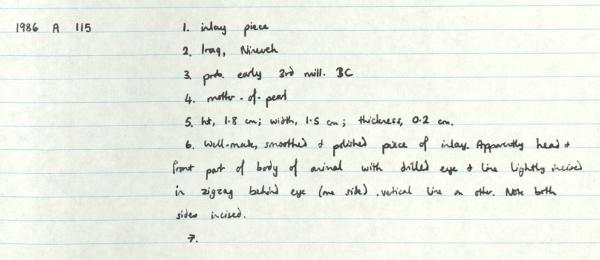 1986 A 115 1. inlay piece
2. Iraq, Nineveh
3. prob. early 3rd mill. BC
4. mother-of-pearl
5. ht, 1.8 cm; width, 1.5 cm; thickness, 0.2 cm.
6. Well-made, smoothed & polished piece of inlay. Apparently head &
front part of body of animal with drilled eye & line lightly incised
in zigzag behind eye (one side), vertical line on other. Note both
sides incised.
7.